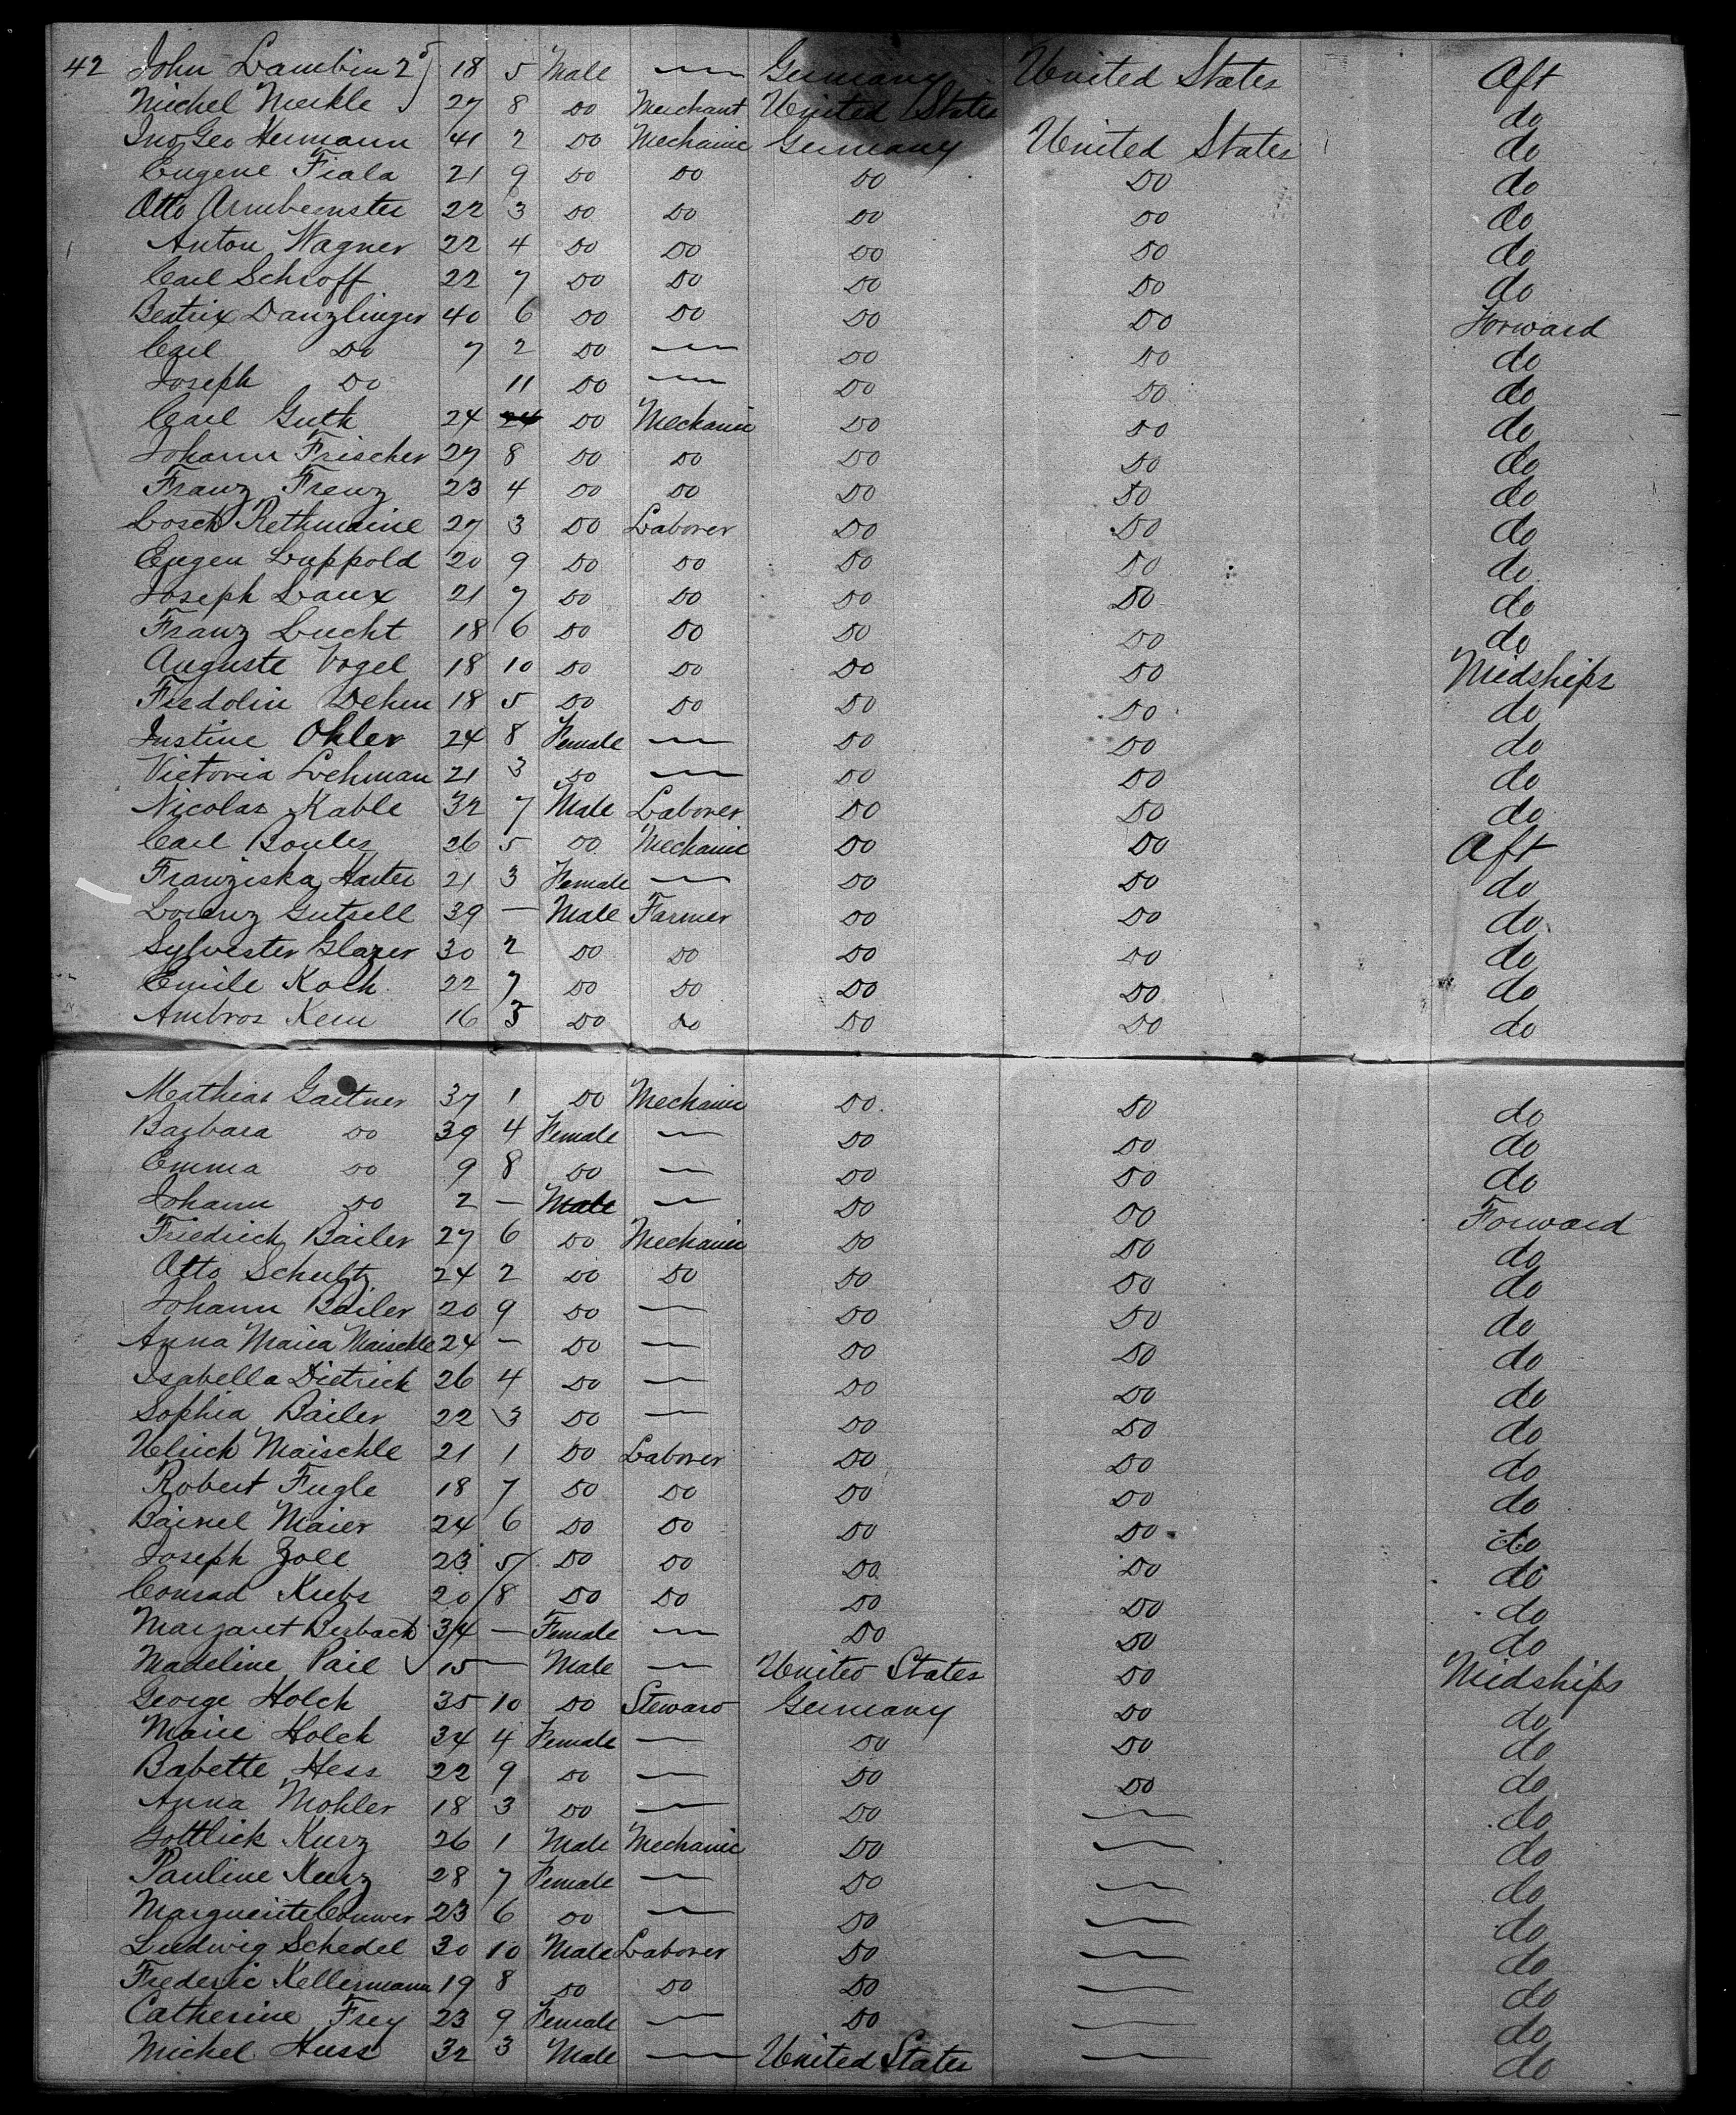 42 John Lambin 2d 18 5 Male — Germany United States Aft
Michel Merkle 27 8 Do Merchant United States do
Jno Geo Hermann 41 2 Do Mechanic Germany United States do
Eugene Fiala 21 9 Do Do Do Do do
Otto Armbernster 22 3 Do Do Do Do do
Anton Wagner 22 4 Do Do Do Do do
Carl Schroff 22 7 Do Do Do Do do
Beatrix Danzlinger 40 6 Do Do Do Do Forward
Carl Do 7 2 Do — Do Do do
Joseph Do 11 Do — Do Do do
Carl Guth 24 24 Do Mechanic Do Do do
Johann Frischer 27 8 Do Do Do Do do
Franz Frenz 23 4 Do Do Do Do do
Losch Rethmaine 27 3 Do Laborer Do Do do
Eugen Luppold 20 9 Do Do Do Do do
Joseph Laux 21 7 Do Do Do Do do
Franz Lucht 18 6 Do Do Do Do do
Auguste Vogel 18 10 Do Do Do Do Midships
Fredolin Dehm 18 5 Do Do Do Do do
Justine Ohler 24 8 Female — Do Do do
Victoria Lehman 21 3 Do — Do Do do
Nicolas Kable 32 7 Male Laborer Do Do do
Carl 26 5 Do Mechanic Do Do Aft
Franziska Harter 21 3 Female — Do Do do
Lorenz Gutsell 39 — Male Farmer Do Do do
Sylvester Glazer 30 2 Do Do Do Do do
Emile Koch 22 7 Do Do Do Do do
Ambros Kern 16 3 Do Do Do Do do
Mathias Gartner 37 1 Do Mechanic Do Do do
Barbara Do 39 4 Female — Do Do do
Emma Do 9 8 Do — Do Do do
Johann Do 2 — Male — Do Do Forward
Friedrich Bailer 27 6 Do Mechanic Do Do do
Otto Schultz 24 2 Do Do Do Do do
Johann Bailer 20 9 Do — Do Do do
Anna Maria Maischle 24 — Do — Do Do do
Isabella Dietrich 26 4 Do — Do Do do
Sophia Bailer 22 3 Do — Do Do do
Ulrich Maischle 21 1 Do Laborer Do Do do
Robert Fugle 18 7 Do Do Do Do do
Maier 24 6 Do Do Do Do do
Joseph Zoll 23 5 Do Do Do Do do
Conrad Kubs 20 8 Do Do Do Do do
Margaret Berbach 34 — Female — Do Do do
Madeline Pail 15 — Male — United States Do Midships
George Holch 35 10 Do Steward Germany Do do
Marie Holch 34 4 Female — Do Do do
Babette Hess 22 9 Do — Do Do do
Anna Mohler 18 3 Do — Do — do
Gottlieb Kurz 26 1 Male Mechanic Do — do
Pauline Kurz 28 7 Female — Do — do
Marguerite 23 6 Do — Do — do
Ludwig Schedel 30 10 Male Laborer Do — do
Frederic Kellermann 19 8 Do Do Do — do
Catherine Frey 23 9 Female — Do — do
Michel Huss 32 3 Male — United States — do